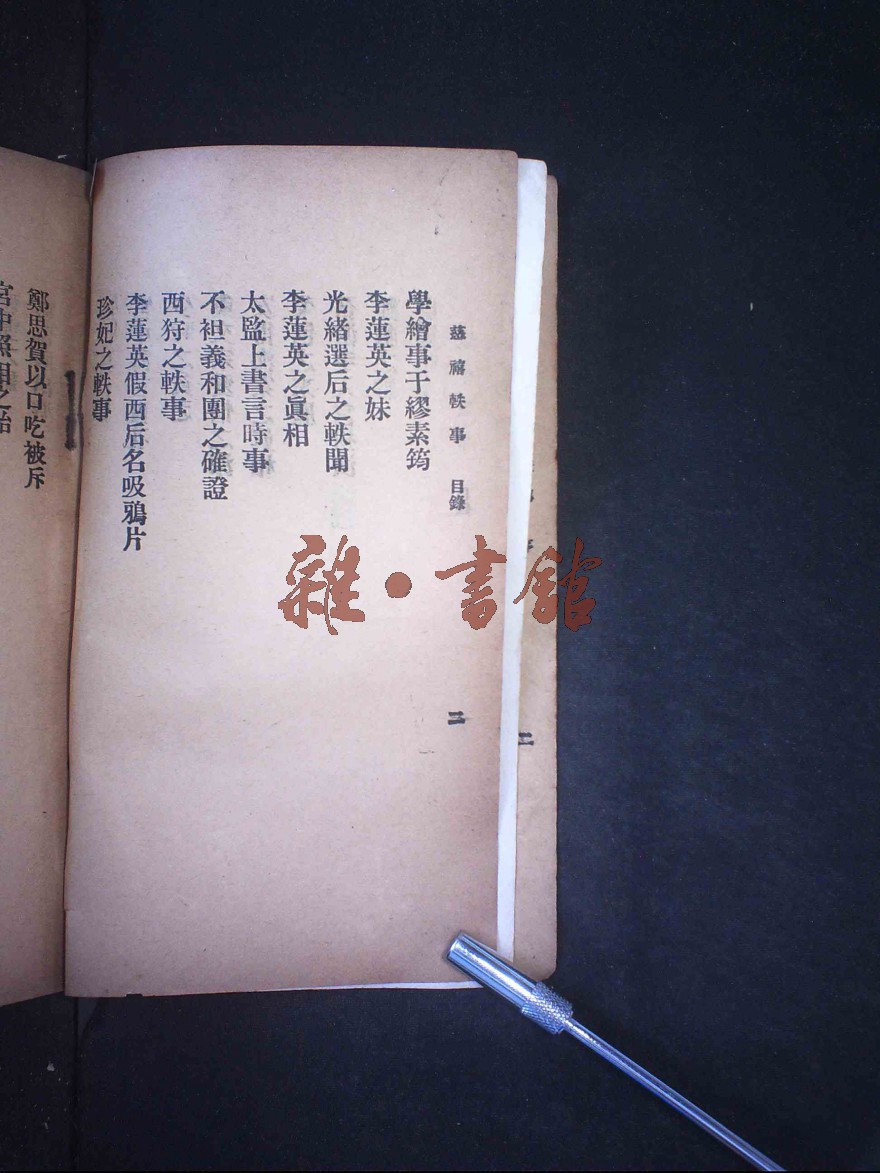 慈禧軼事 目錄 二
學繪事于繆素筠
李蓮英之妹
光緒選后之軼聞
李蓮英之眞相
太監上書言時事
不袒義和團之確證
西狩之軼事
李蓮英假西后名吸鴉片
珍妃之軼事
鄭思賀以口吃被斥
宮中照相之始
雜·書館
二